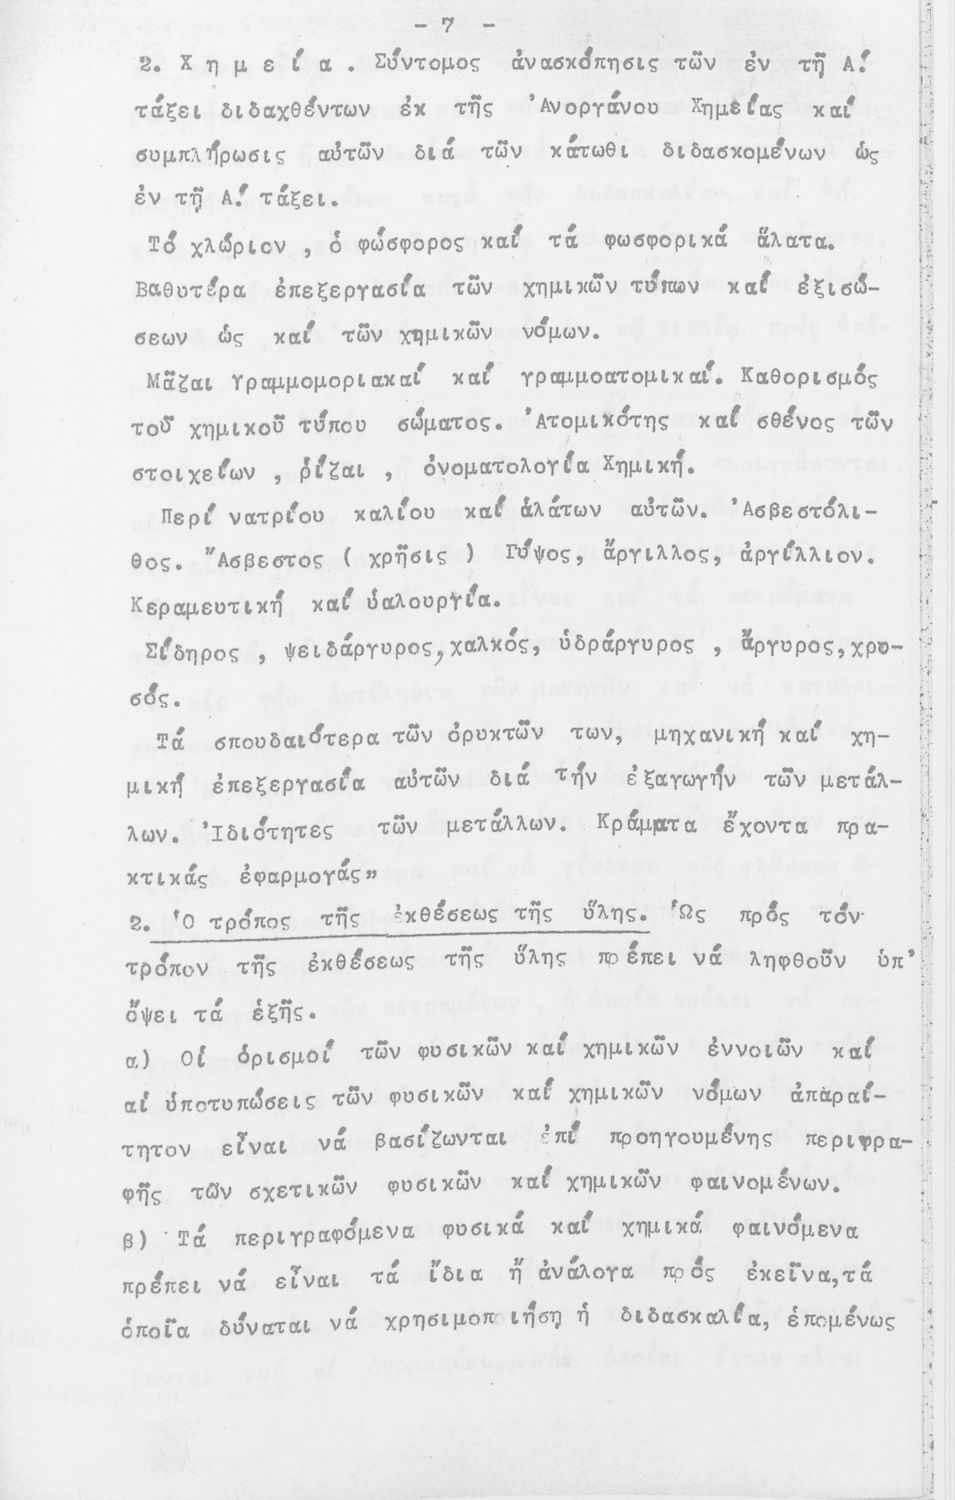 - 7 -
2. Χ η μ ε ί α . Σύντομος ἀνασκόπησις τῶν ἐν τῇ Α΄
τάξει διδαχθέντων ἐκ τῆς Ἀνοργάνου Χημείας καί
συμπλήρωσις αὐτῶν διά τῶν κάτωθι διδασκομένων ὡς
ἐν τῇ Α΄ τάξει.
Τό χλώριον , ὁ φώσφορος καί τά φωσφορικά ἅλατα.
Βαθυτέρα ἐπεξεργασία τῶν χημικῶν τύπων καί ἐξισώ-
σεων ὡς καί τῶν χημικῶν νόμων.
Μᾶζαι γραμμομοριακαί καί γραμμοατομικαί. Καθορισμός
τοῦ χημικοῦ τύπου σώματος. Ἀτομικότης καί σθένος τῶν
στοιχείων , ῥίζαι , ὀνοματολογία Χημική.
Περί νατρίου καλίου καί ἁλάτων αὐτῶν. Ἀσβεστόλι-
θος. Ἄσβεστος ( χρῆσις ) Γύψος, ἄργιλλος, ἀργίλλιον.
Κεραμευτική καί ὑαλουργία.
Σίδηρος , ψειδάργυρος, χαλκός, ὑδράργυρος , ἄργυρος, χρυ-
σός.
Τά σπουδαιότερα τῶν ὀρυκτῶν των, μηχανική καί χη-
μική ἐπεξεργασία αὐτῶν διά τήν ἐξαγωγήν τῶν μετάλ-
λων. Ἰδιότητες τῶν μετάλλων. Κράματα ἔχοντα πρα-
κτικάς ἐφαρμογάς"
2. Ὁ τρόπος τῆς ἐκθέσεως τῆς ὕλης. Ὡς πρός τόν
τρόπον τῆς ἐκθέσεως τῆς ὕλης πρέπει νά ληφθοῦν ὑπ'
ὄψει τά ἑξῆς.
α) Οἱ ὁρισμοί τῶν φυσικῶν καί χημικῶν ἐννοιῶν καί
αἱ ὑποτυπώσεις τῶν φυσικῶν καί χημικῶν νόμων ἀπαραί-
τητον εἶναι νά βασίζωνται ἐπί προηγουμένης περιγρα-
φῆς τῶν σχετικῶν φυσικῶν καί χημικῶν φαινομένων.
β) Τά περιγραφόμενα φυσικά καί χημικά φαινόμενα
πρέπει νά εἶναι τά ἴδια ἤ ἀνάλογα πρός ἐκεῖνα, τά
ὁποῖα δύναται νά χρησιμοποιήσῃ ἡ διδασκαλία, ἑπομένως